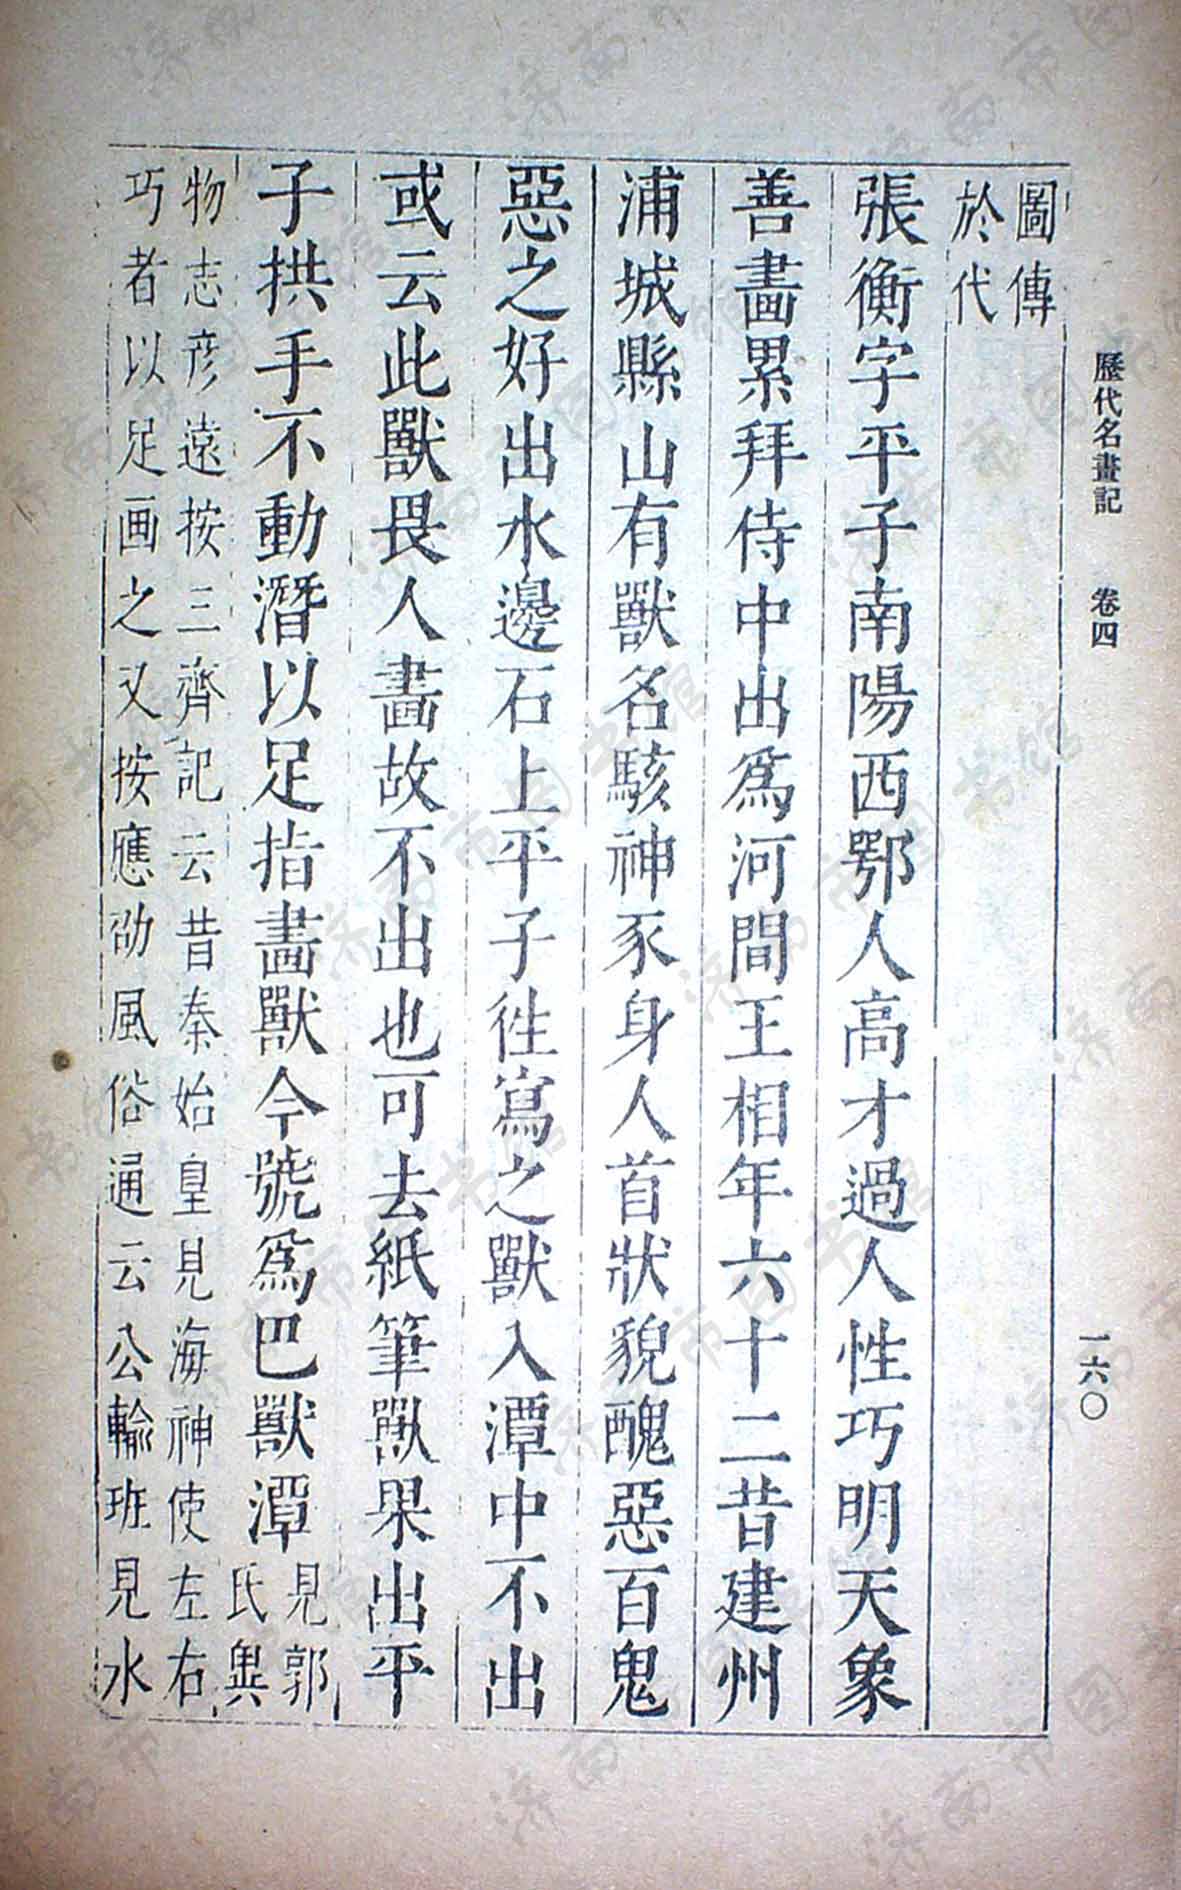 歷代名畫記 卷四 一六〇
圖傳
於代
張衡字平子南陽西鄂人高才過人性巧明天象
善畫累拜侍中出爲河間王相年六十二昔建州
浦城縣山有獸名駭神豕身人首狀貌醜惡百鬼
惡之好出水邊石上平子徃寫之獸入潭中不出
或云此獸畏人畫故不出也可去紙筆獸果出平
子拱手不動潛以足指畫獸今號爲巴獸潭
見郭
氏異
物志彦遠按三齊記云昔秦始皇見海神使左右
巧者以足画之又按應劭風俗通云公輸班見水
济南市图书馆